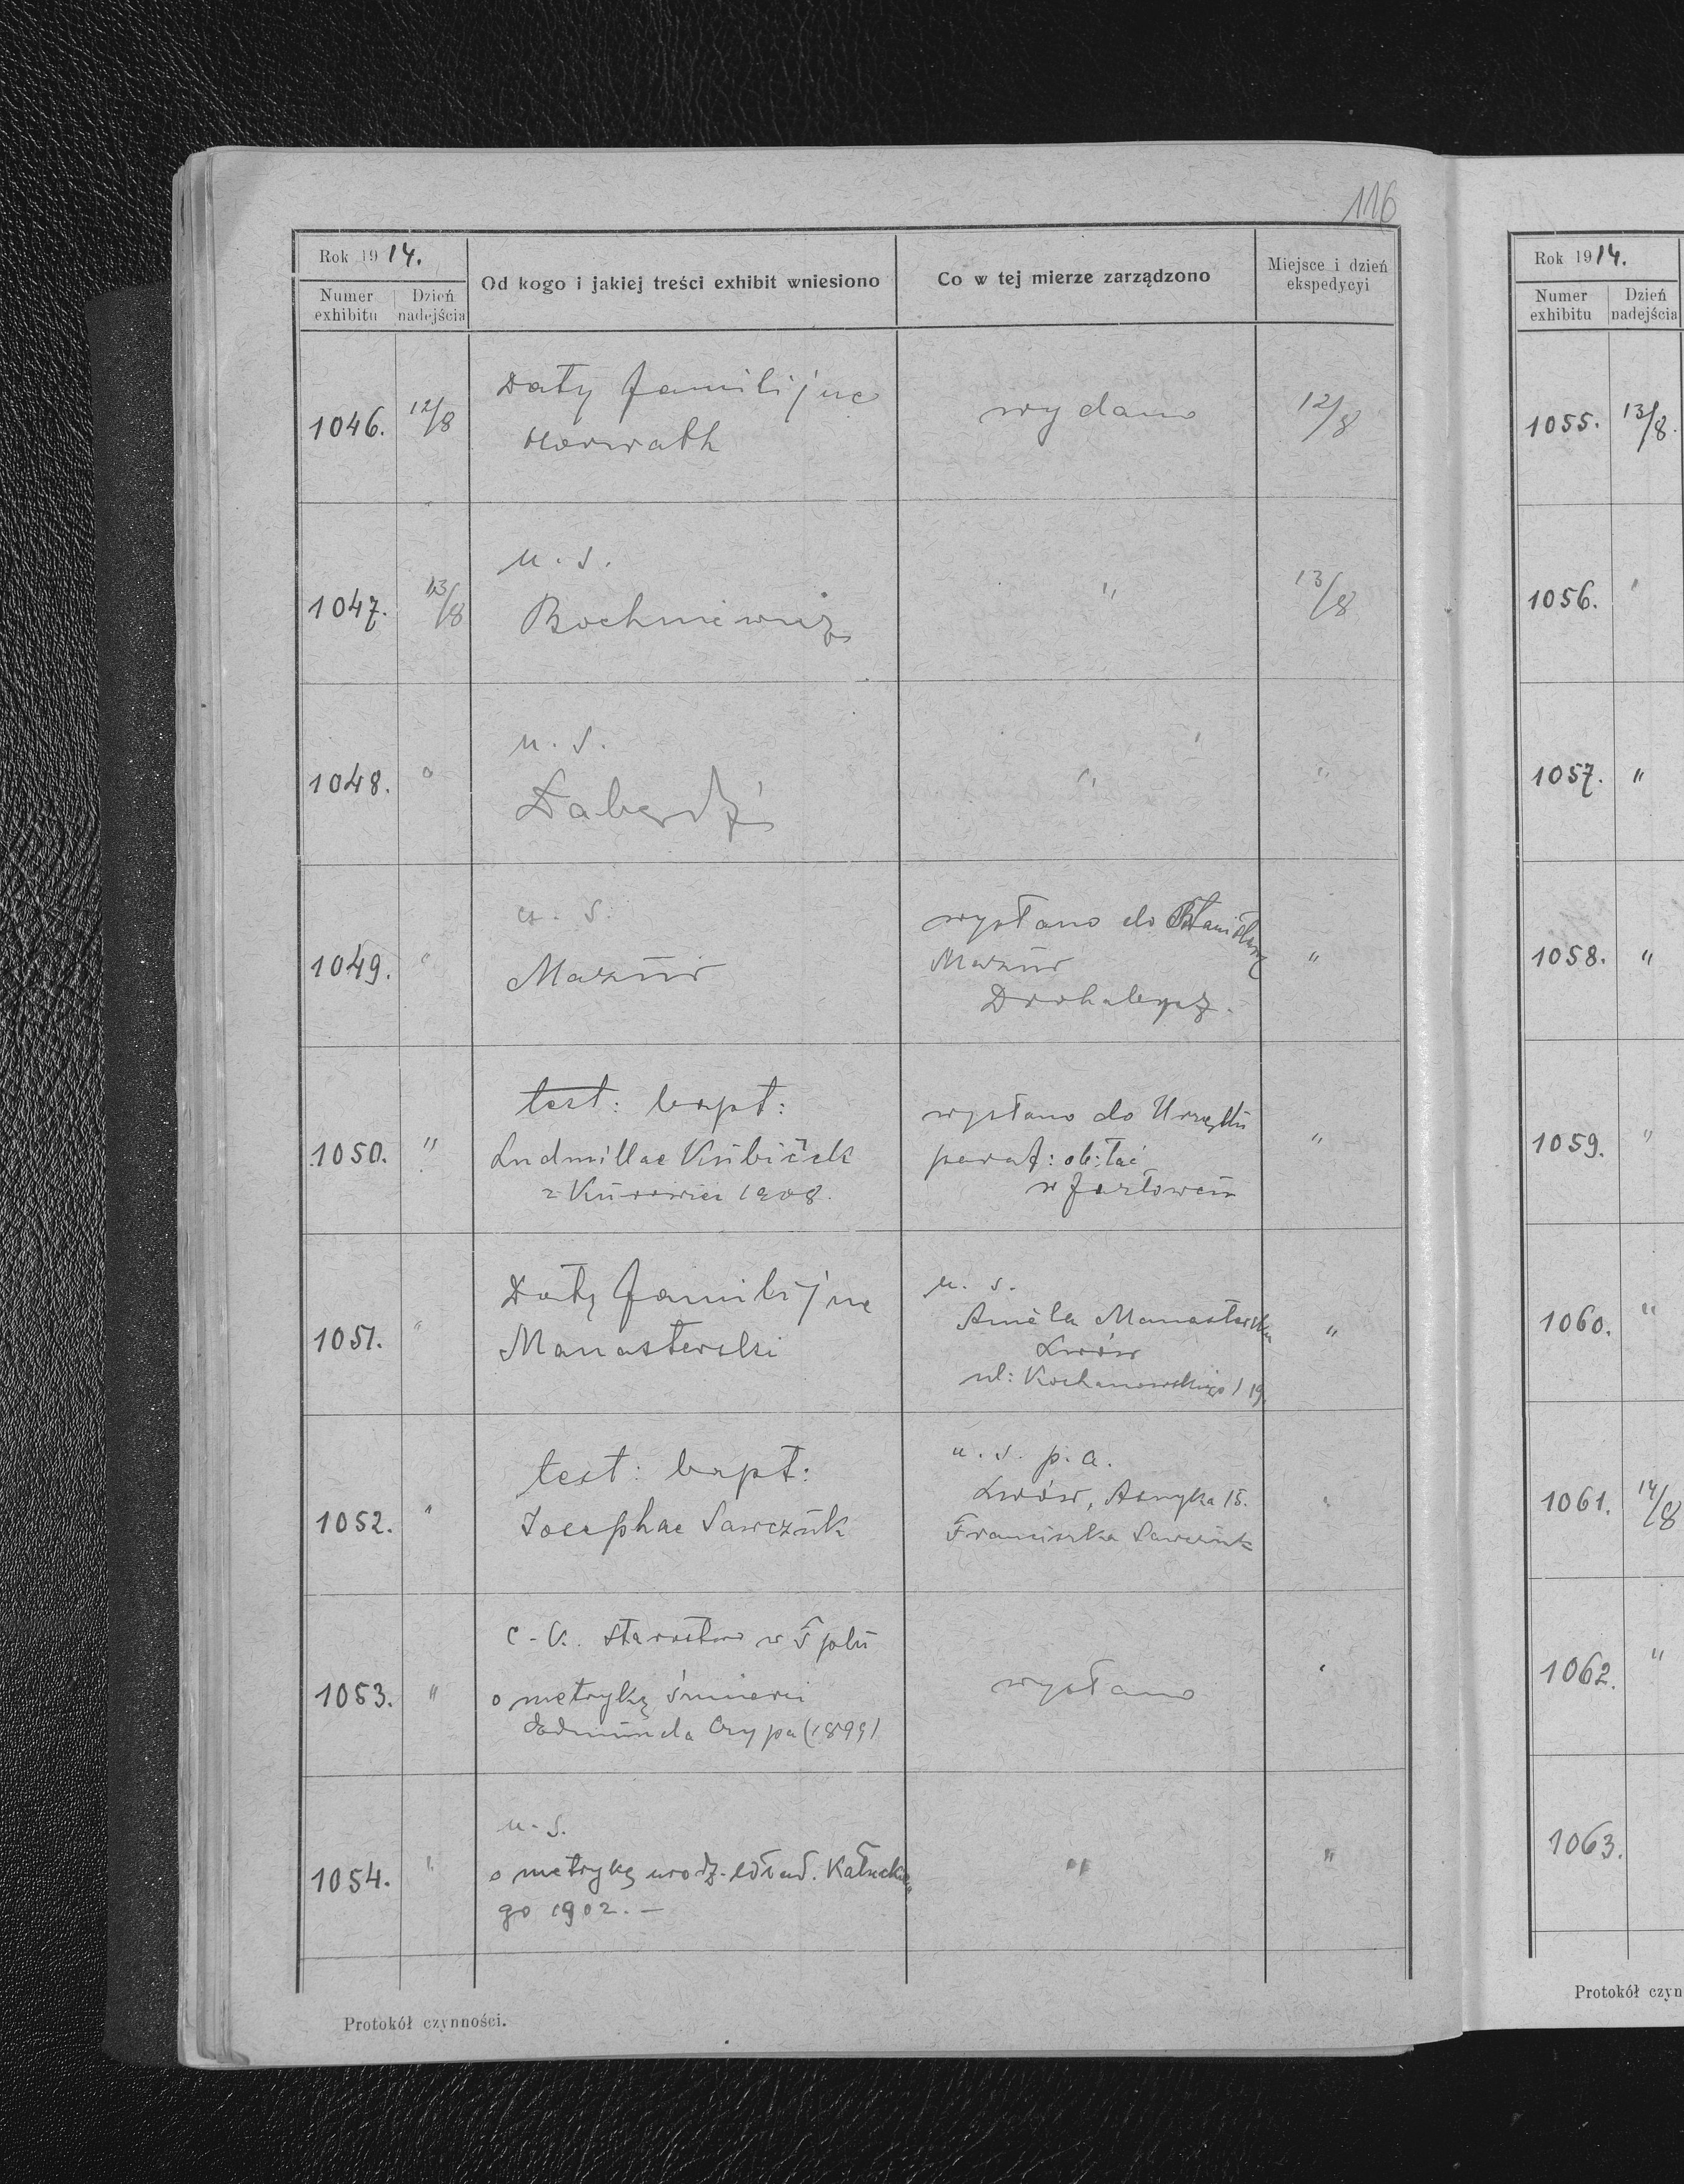 116
Rok 1914.
Numer exhibitu
Dzień nadejścia
Od kogo i jakiej treści exhibit wniesiono
Co w tej mierze zarządzono
Miejsce i dzień ekspedycyi
1046. 12/8 Daty familijne wydano 12/8
Horwath
1047. 13/8 u. s. " 13/8
Bochniewicz
1048. " u. s. " "
1049. " u. s. wysłano do Stanisława "
Mazur Mazur
Drohobycz.
1050. " test: bapt: wysłano do Urzędu "
Ludmillae Kubiček paraf: ob: łać
z Kurowice 1908. w Jazłowcu
1051. " Daty familijne u. s. "
Manasterski Amela Manasterska
Lwów
ul: Kochanowskiego / 19.
1052. " test: bapt: u. s. p. a. "
Josephae Sawczuk Lwów, Asnyka 15.
Franciszka Sawczuk
1053. " c. k. starostwo w wysłano "
o metrykę śmierci
Edmunda (1899)
1054. " u. s. " "
o metrykę urodz. Kałuckie
go 1902. —
Protokół czynności.
Rok 1914.
Numer exhibitu
Dzień nadejścia
1055. 13/8.
1056. "
1057. "
1058. "
1059. "
1060. "
1061. 14/8
1062. "
1063.
Protokół czyn